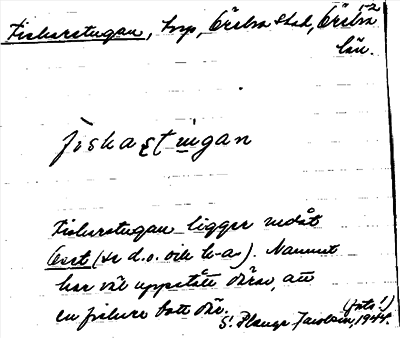 Fiskarstugan, torp, Örebro stad, Örebro
län.
fiskastugan
Fiskarstugan ligger nedåt
(se d.o. och k-a). Namnet
har väl uppstått därav, att
en fiskare bott där.
(foto!)
S. Jacobson, 1944.